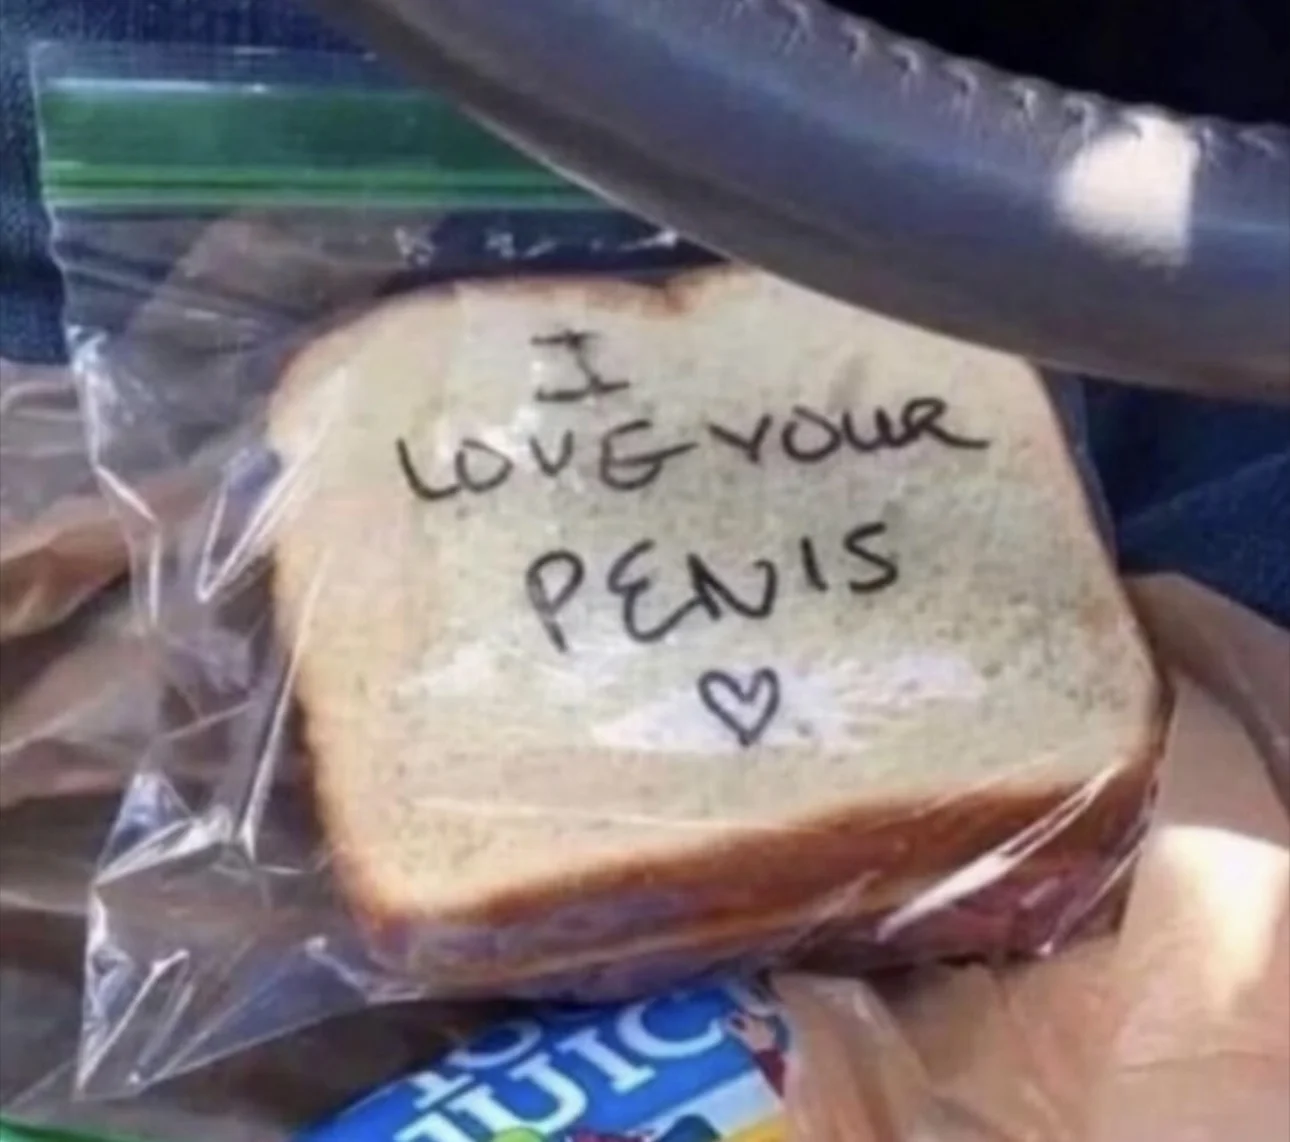 I
LOVE YOUR
PENIS
JUIC